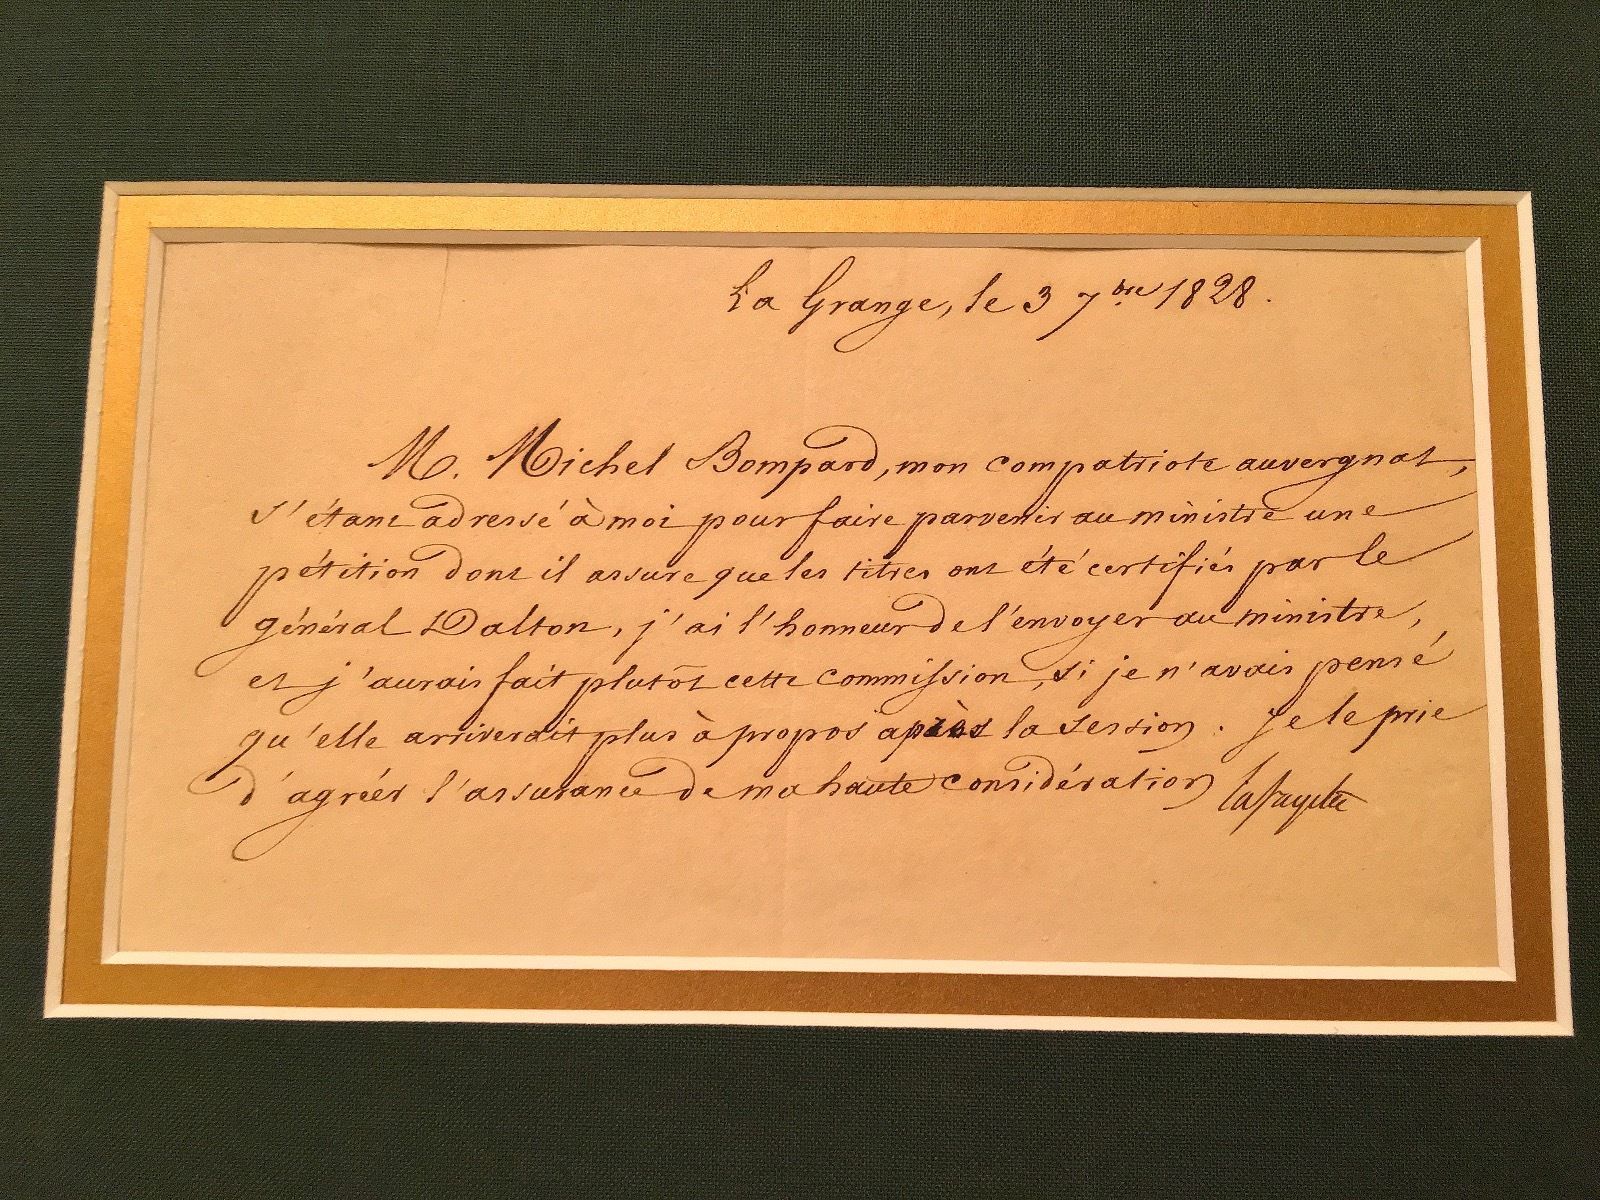 La Grange, le 3 7bre 1828.
M. Michel Bompard, mon compatriote auvergnat,
s'étant adressé à moi pour faire parvenir au ministre une
pétition dont il assure que les titres ont été certifiés par le
général Dalton, j'ai l'honneur de l'envoyer au ministre,
et j'aurais fait plutôt cette commission, si je n'avais pensé
qu'elle arriverait plus à propos après la session. Je le prie
d'agréer l'assurance de ma haute considération
Lafayette